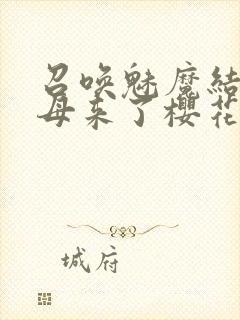 召唤魅魔结
母来了樱花
城府